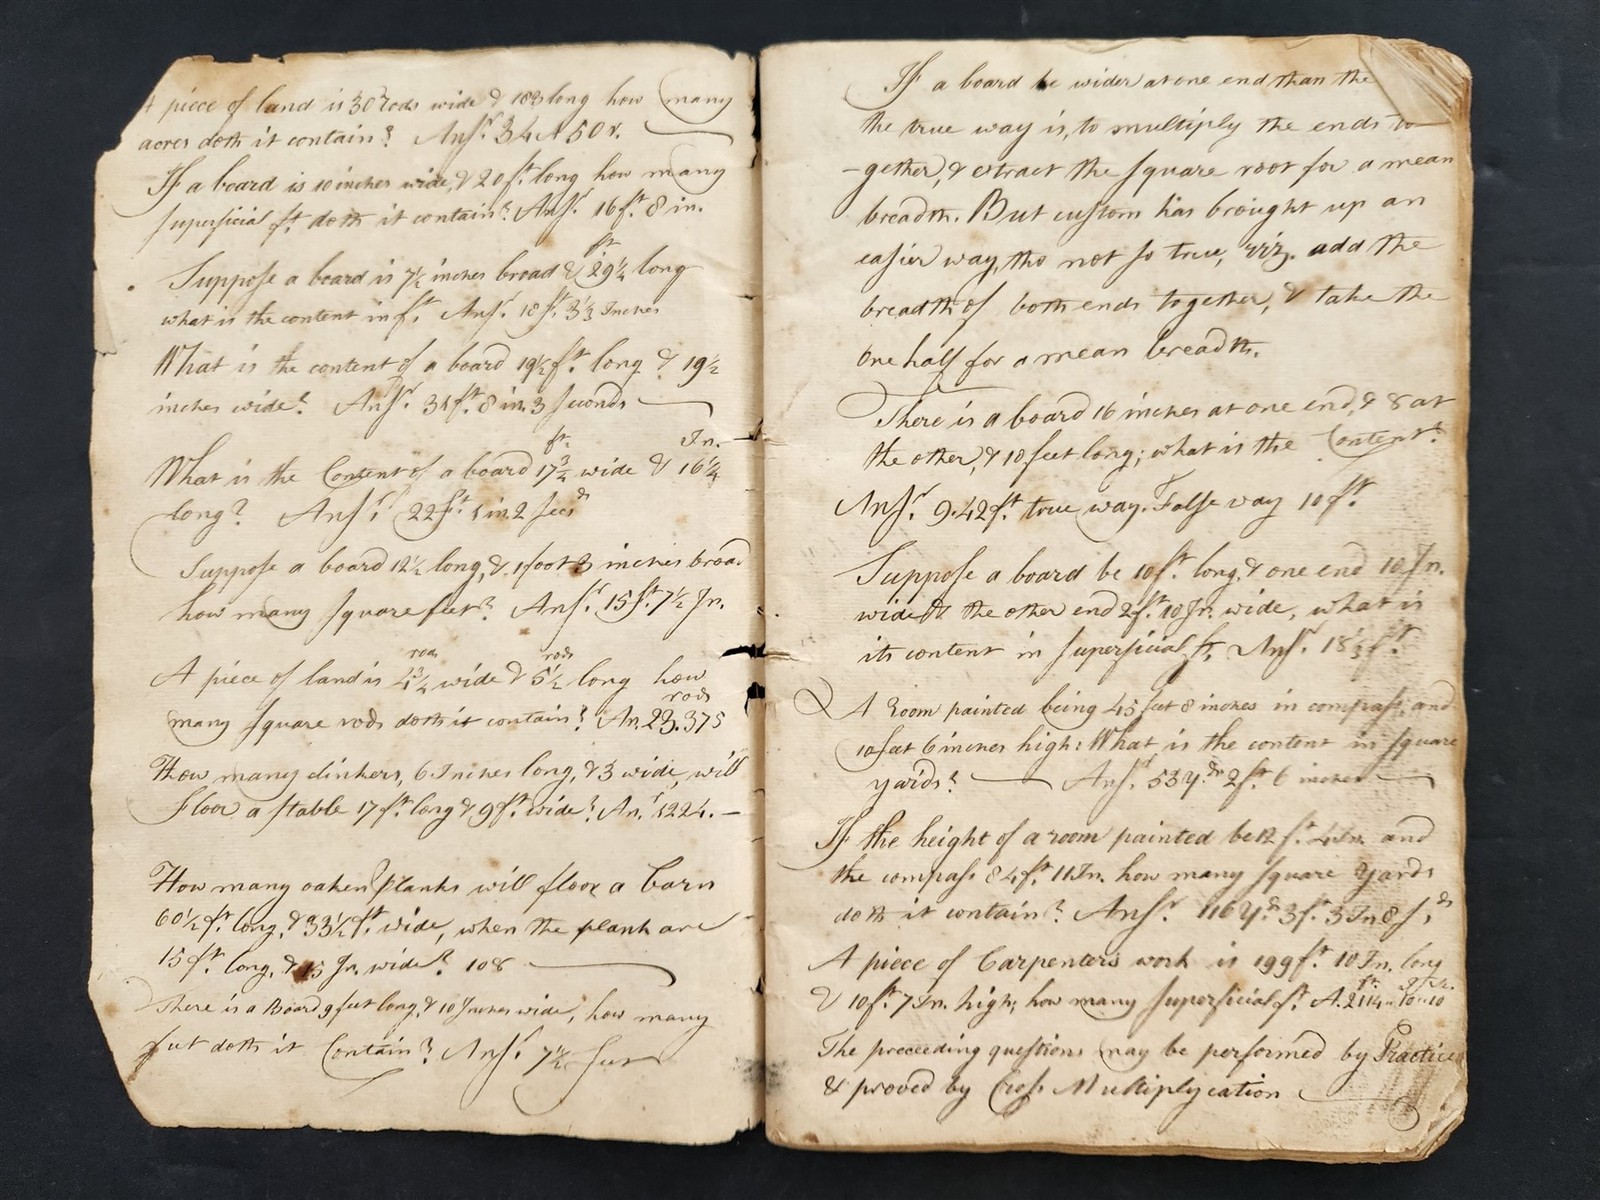 A piece of land is 30 rods wide & 183 long how many
acres doth it contain? Ansr. 34 A 50 r.
If a board is 10 inches wide, & 20 ft. long how many
superficial ft. doth it contain? Ansr. 16 ft. 8 in.
Suppose a board is 7½ inches broad & 29¼ ft long
what is the content in ft. Ansr. 18 ft. 3⅓ Inches
What is the content of a board 19½ ft. long & 19½
inches wide? Ansr. 31 ft. 8 in. 3 seconds
What is the Content of a board 17¾ ft. wide & 16¼ In.
long? Ansr. 22 ft. 5 in. 2 secds
Suppose a board 12½ long, & 1 foot 3 inches broad
how many square feet? Ansr. 15 ft. 7½ In.
A piece of land is 4¾ rods wide & 5½ rods long how
many square rods doth it contain? An. 23.375 rods
How many clinkers, 6 Inches long, & 3 wide, will
floor a stable 17 ft. long & 9 ft. wide? Anr. 1224.
How many oaken planks will floor a Barn
60½ ft. long, & 33½ ft. wide, when the plank are
15 ft. long, & 15 In. wide? 108
There is a Board 9 feet long, & 10 Inches wide, how many
feet doth it Contain? Ansr. 7½ feet
If a board be wider at one end than the
the true way is, to multiply the ends to
-gether, & extract the square root for a mean
breadth. But custom has brought up an
easier way, tho not so true, viz. add the
breadth of both ends together, & take the
one half for a mean breadth.
There is a board 16 inches at one end, & 8 at
the other, & 10 feet long; what is the Content?
Ansr. 9.42 ft. true way. False way 10 ft.
Suppose a board be 10 ft. long, & one end 10 In.
wide & the other end 2 ft. 10 In. wide, what is
its content in superficial ft. Ansr. 18⅓ ft.
A Room painted being 45 feet 8 inches in compass, and
10 feet 6 inches high: What is the content in square
yards? Ansr. 53 y.ds 2 ft. 6 inches
If the height of a room painted be 12 ft. 4 In. and
the compass 84 ft. 11 In. how many square yards
doth it contain? Ansr. 116 y.ds 3 ft. 3 In 8 s.ds
A piece of Carpenters work is 199 ft. 10 In. long
& 10 ft. 7 In. high; how many superficial ft. A. 2114 " 10 " 10
The preceeding questions may be performed by Practice
& proved by Cross Multiplycation